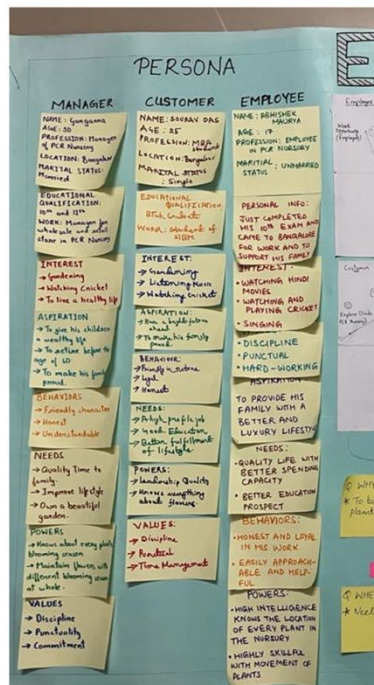 PERSONA
MANAGER
NAME: Gunganna
AGE: 50
PROFESSION: Manager
of PCR Nursery
LOCATION: Bangalor
MARITAL STATUS:
Married
EDUCATIONAL
QUALIFICATION:
10th and 12th
WORK: Manager for
wholesale and retail
store in PCR Nursery
INTEREST
→ Gardening
→ Watching Cricket
→ To live a healthy life
ASPIRATION
→ To give his children
a wealthy life
→ To retire before the
age of 60
→ To make his family
proud.
BEHAVIORS
→ Friendly character
→ Honest
→ Understandable
NEEDS
→ Quality Time to
family.
→ Improve lifestyle
→ Own a beautiful
garden.
POWERS
→ Knows about every plants
blooming season
→ Maintain flowers with
different blooming season
at whole.
VALUES
→ Discipline
→ Punctuality
→ Commitment
CUSTOMER
NAME: SOURAV DAS
AGE: 25
PROFESSION: MBA
student
LOCATION: Bangalor
MARITAL STATUS:
Single
EDUCATIONAL
QUALIFICATION:
WORK: Student of
INTEREST:
→ Gardening
→ Listening Music
→ Watching Cricket
ASPIRATION:
→ Have a bright future
ahead
→ To make his family
proud.
BEHAVIOR:
→ Friendly in nature
→ Loyal
→ Honest
NEEDS:
→ A high profile job
→ Good Education
→ Better fulfillment of
lifestyle
POWERS:
→ Leadership Quality
→ Knows everything
about flowers.
VALUES:
→ Discipline
→ Punctual
→ Time Management
EMPLOYEE
NAME: ABHISHEK
MAURYA
AGE: 17
PROFESSION: EMPLOYEE
IN PCR NURSERY
MARITIAL : UNMARRED
STATUS
PERSONAL INFO:
JUST COMPLETED
HIS 10th EXAM AND
CAME TO BANGALORE
FOR WORK AND TO
SUPPORT HIS FAMILY
INTEREST:
• WATCHING HINDI
MOVIES
• WATCHING AND
PLAYING CRICKET
• SINGING
• DISCIPLINE
• PUNCTUAL
• HARD-WORKING
ASPIRATION
TO PROVIDE HIS
FAMILY WITH A
BETTER AND
LUXURY LIFESTYLE
NEEDS:
• QUALITY LIFE WITH
BETTER SPENDING
CAPACITY
• BETTER EDUCATION
PROSPECT
BEHAVIORS:
• HONEST AND LOYAL
IN HIS WORK
• EASILY APPROACH-
ABLE AND HELP-
FUL
POWERS:
• HIGH INTELLIGENCE
KNOWS THE LOCATION
OF EVERY PLANT IN
THE NURSURY
• HIGHLY SKILLFUL
WITH MOVEMENT OF
PLANTS
E
Employee
Customer
Q WHY
* To bu
plant
Q WHE
* Need